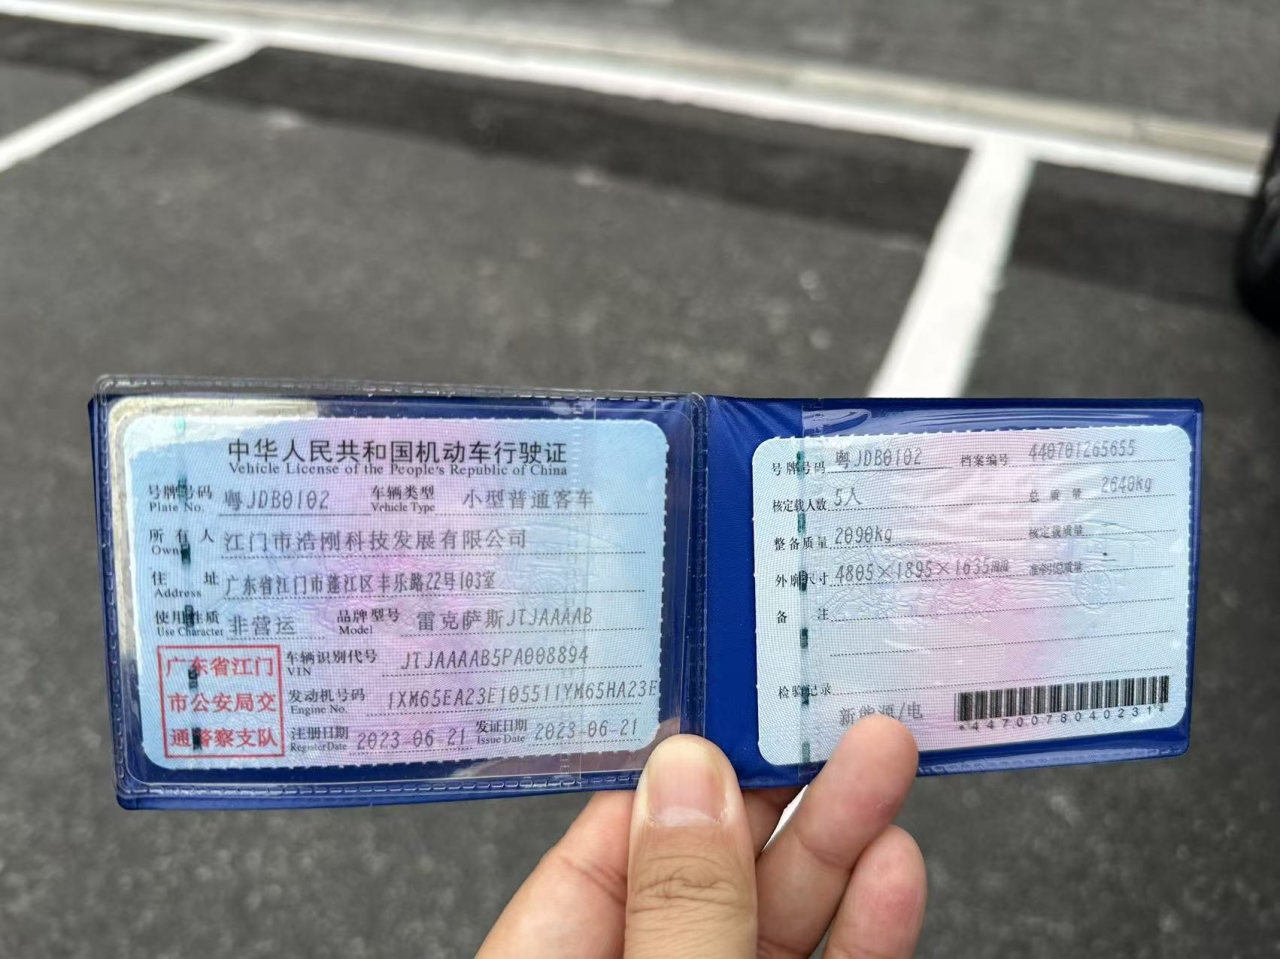 中华人民共和国机动车行驶证
Vehicle License of the People's Republic of China
号牌号码 粤JDB0102 车辆类型 小型普通客车
Plate No. Vehicle Type
所有人 江门市浩刚科技发展有限公司
Owner
住址 广东省江门市蓬江区丰乐路22号103室
Address
使用性质 非营运 品牌型号 雷克萨斯JTJAAAAB
Use Character Model
广东省江门
市公安局交
通警察支队
车辆识别代号 JTJAAAAB5PA008894
VIN
发动机号码 1XM65EA23E105511YM65HA23E
Engine No.
注册日期 2023-06-21 发证日期 2023-06-21
Register Date Issue Date
号牌号码 粤JDB0102 档案编号 440701265655
核定载人数 5人 总质量 2640kg
整备质量 2090kg 核定载质量
外廓尺寸 4805×1895×1635mm 准牵引总质量
备注
检验记录
新能源/电
*4470078040231*